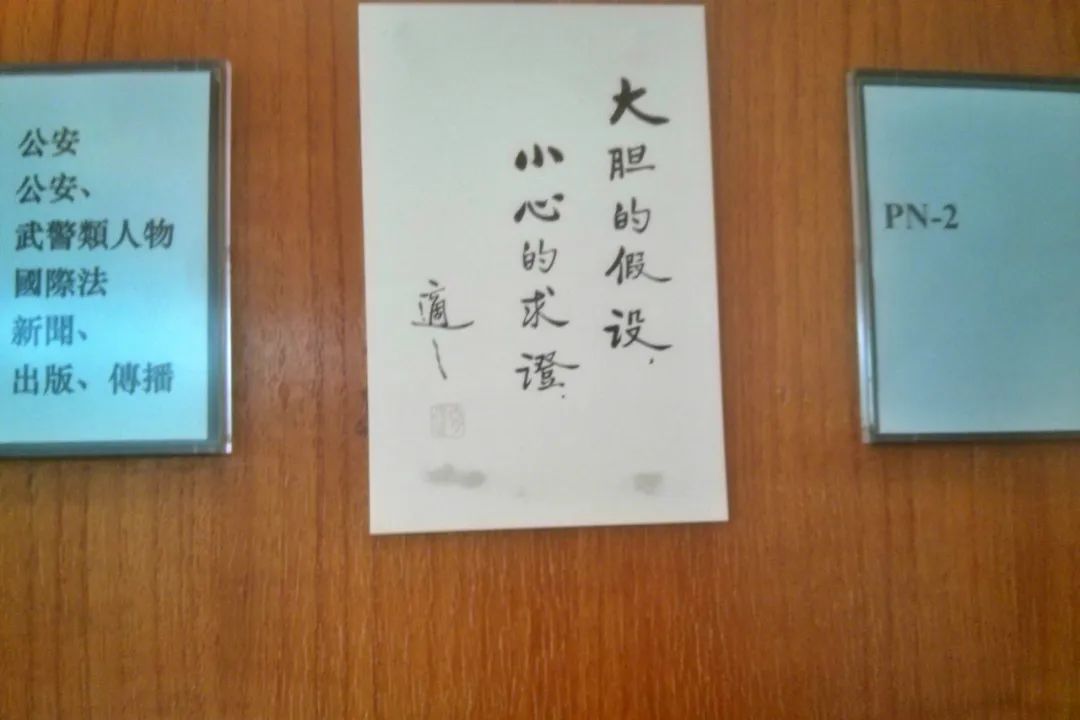 公安
公安、
武警類人物
國際法
新聞、
出版、傳播
大胆的假设.
小心的求證.
適之
PN-2